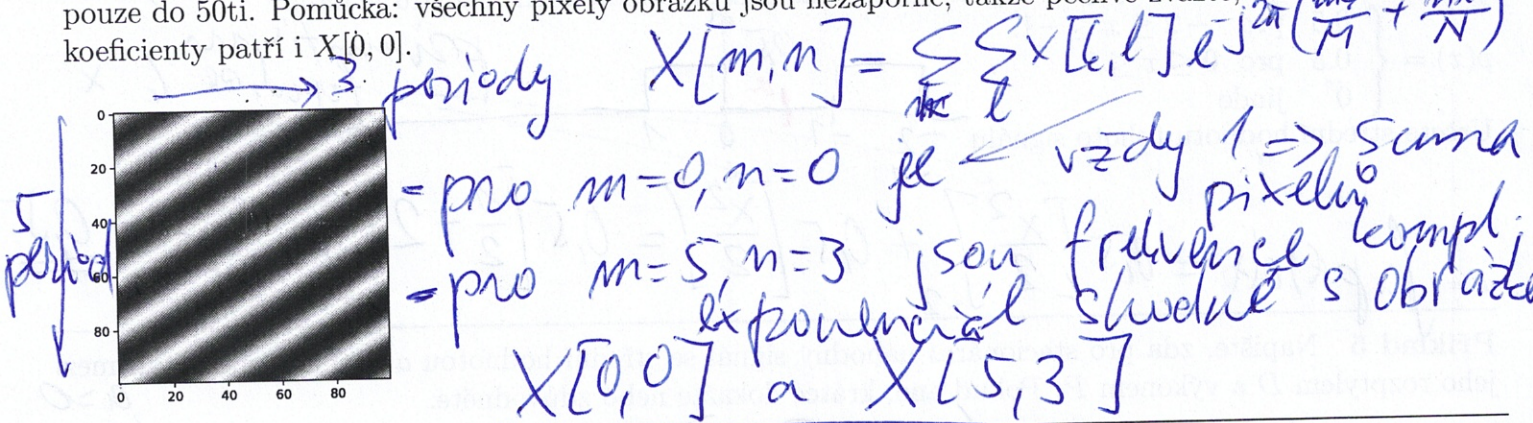 pouze do 50ti. Pomůcka: všechny pixely obrázku jsou nezáporné, takže
koeficienty patří i X[0, 0].
→ 3 periody
X[m,n] = Σ Σ x[k,l] e^{-j2π(mk/M + nl/N)}
k l
5 period
0
20
40
60
80
0 20 40 60 80
- pro m=0, n=0 je vždy 1 => suma
pixelů
- pro m=5, n=3 jsou frekvence kompl.
exponenciál shodné s obrázke
X[0,0] a X[5,3]